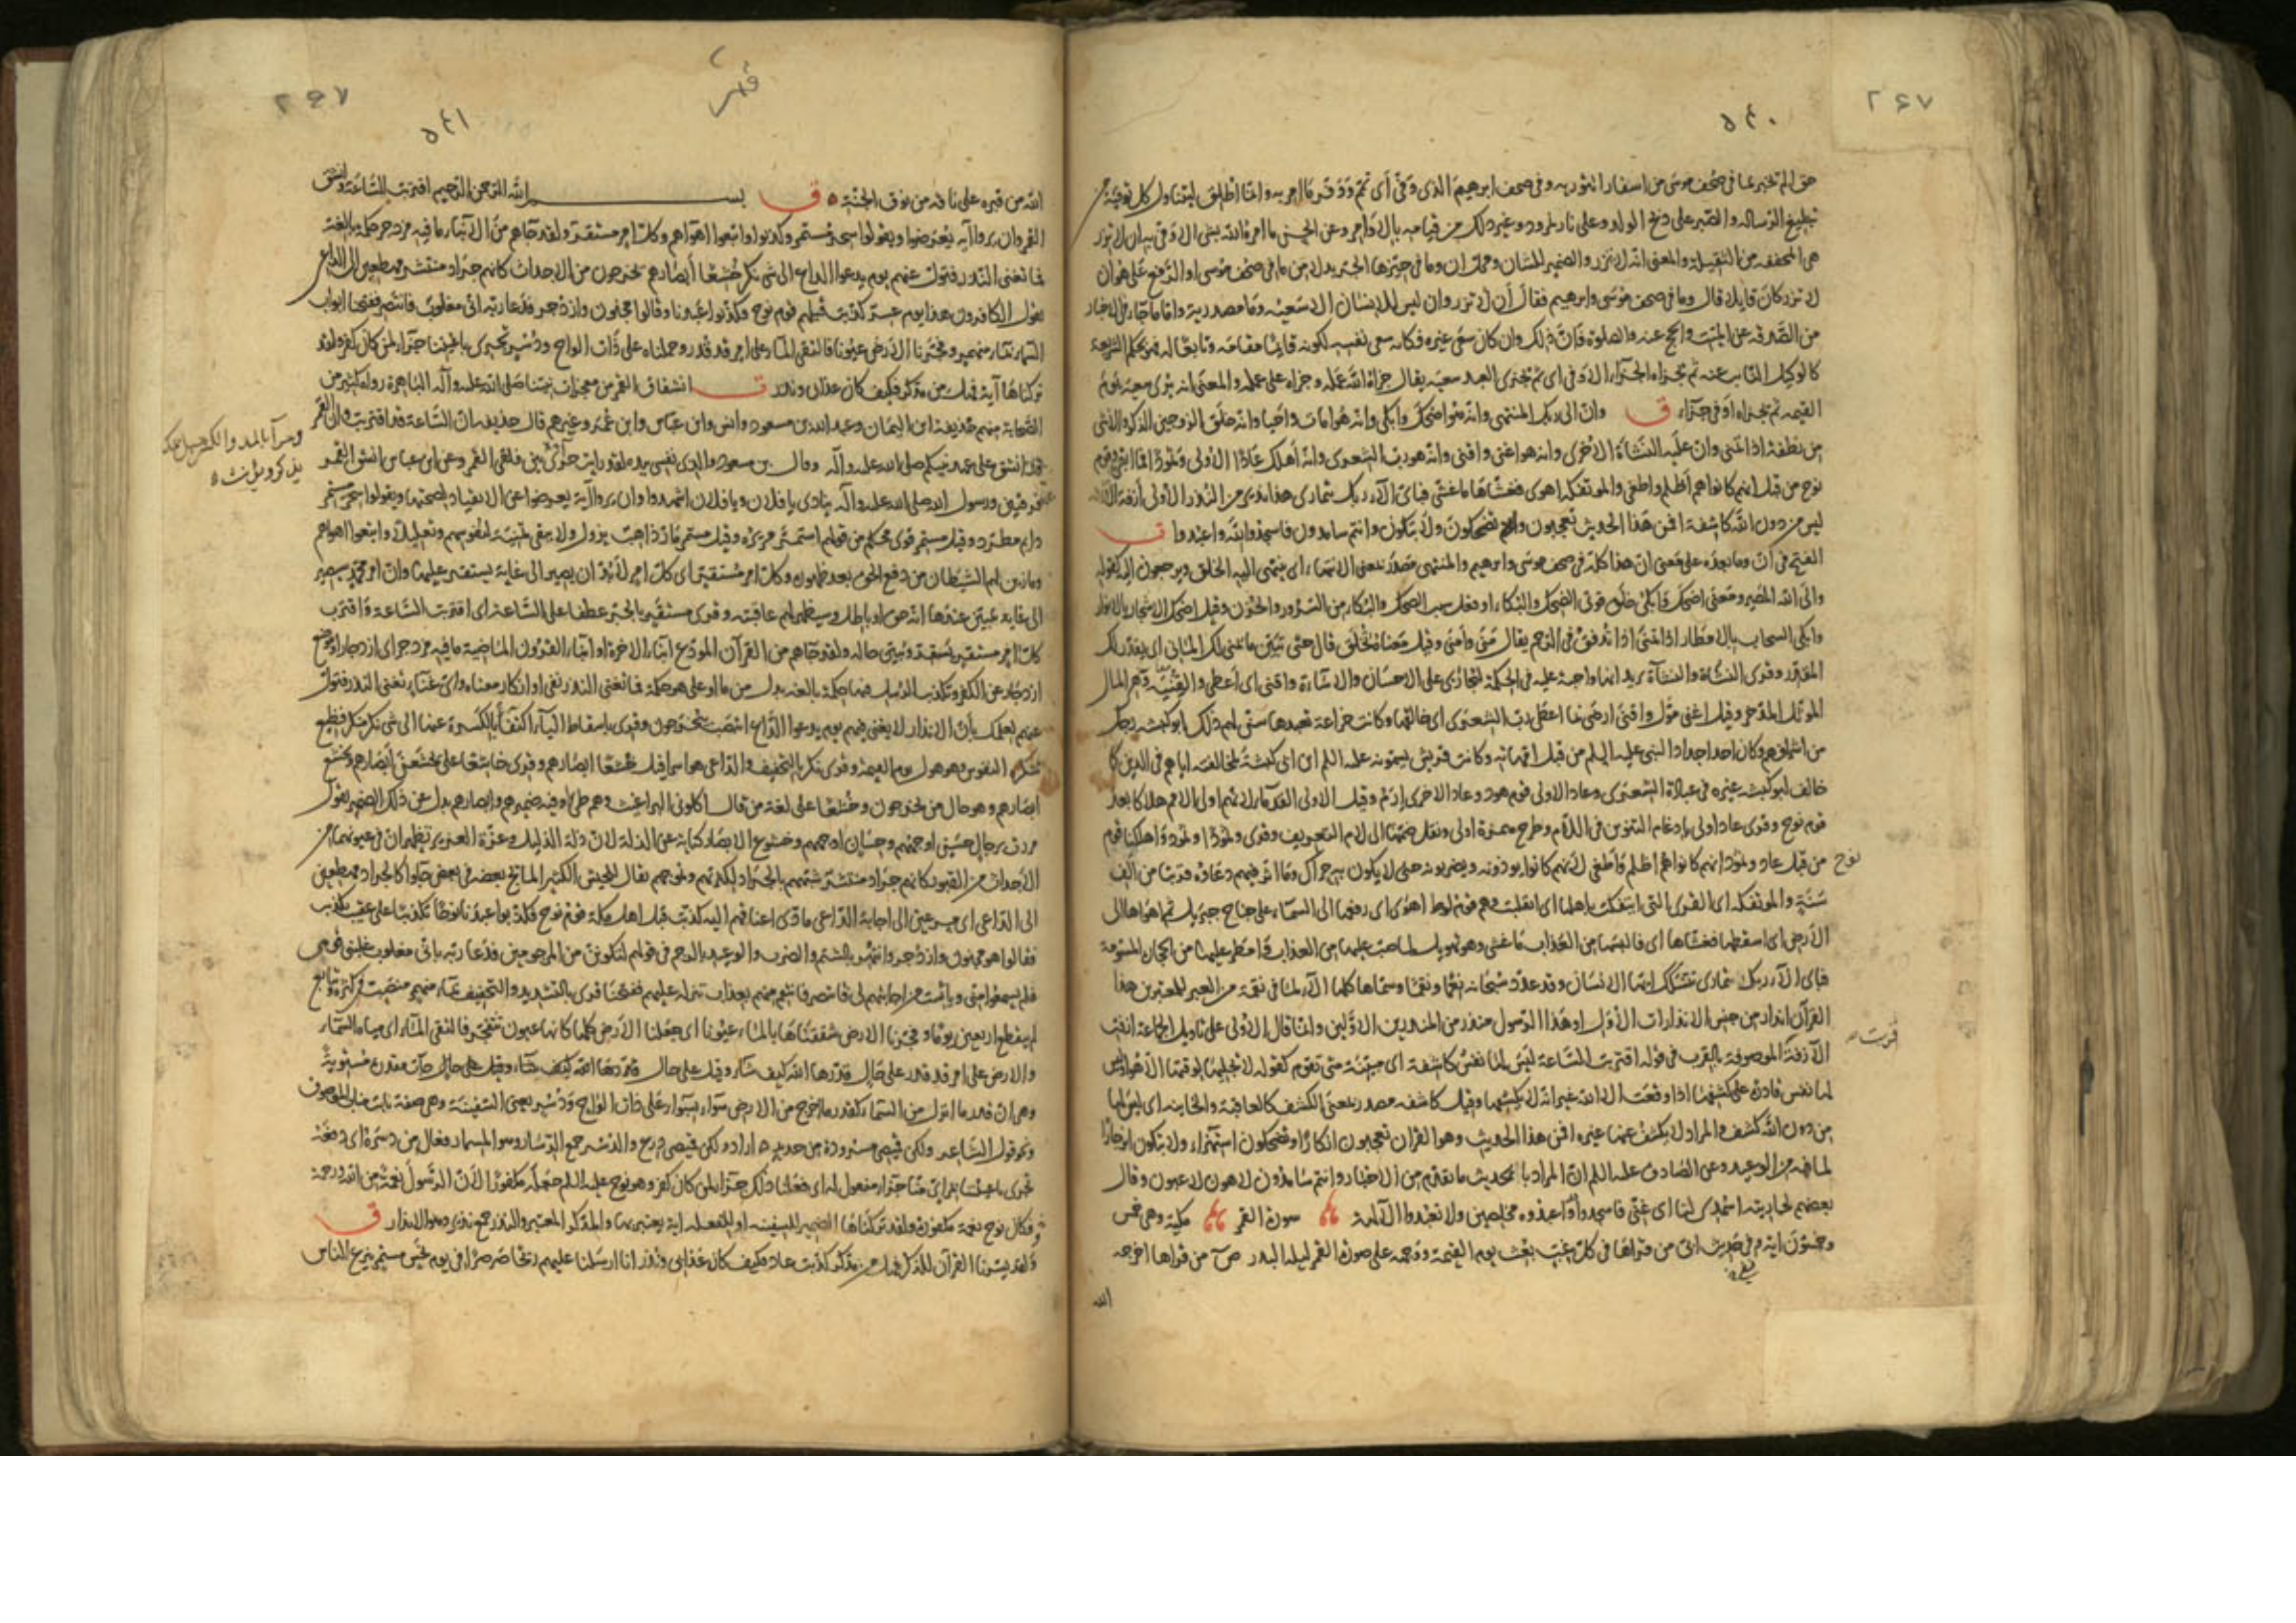 ٢٤٧
٥٤٠
حق الم تخبر بما في صحف موسى من اسفار التورية وفي صحف ابرهيم الذي وفّى أي تمّم ووفّر ما امر به وانما اطلق ليتناول كل توفية من
تبليغ الرسالة والصبر على ذبح الولد وعلى نار نمرود وغير ذلك من قيامه بالاوامر وعن الحسن ما امره الله بشئ الا وفّى به ان لا تزر
هي المخففة من الثقيلة والمعنى انه لا تزر والضمير للشان ومحل ان وما في حيزها الجر بدلا من ما في صحف موسى او الرفع على هو أن
لا تزر كأن قايلا قال وما في صحف موسى وابرهيم فقال أن لا تزر وان ليس للانسان الا سعيه وما مصدرية واما ما جاء في الاخبار
من الصدقة عن الميت والحج عنه والصلوة فان ذلك وان كان سعى غيره فكانه سعى نفسه لكونه قائما مقامه وتابعا له فهو بحكم الشريعة
كالوكيل النائب عنه ثم يجزاه الجزاء الاوفى اى ثم يجزى العبد سعيه يقال جزاه الله عمله وجزاه على عمله والمعنى انه يرى سعيه يوم
القيمة ثم يجزاه اوفى جزاء ق وان الى ربك المنتهى وانه هو اضحك وابكى وانه هو امات واحيا وانه خلق الزوجين الذكر والانثى
من نطفة اذا تمنى وان عليه النشاة الاخرى وانه هو اغنى واقنى وانه هو رب الشعرى وانه أهلك عادا الاولى وثمودا فما ابقى وقوم
نوح من قبل انهم كانوا هم أظلم واطغى والموتفكة اهوى فغشاها ما غشى فباى الآء ربك تتمارى هذا نذير من النذر الاولى أزفة الآزفة
ليس من دون الله كاشفة افمن هذا الحديث تعجبون وتضحكون ولا تبكون وانتم سامدون فاسجدوا لله واعبدوا ق
الفتح في ان وما بعده على معنى ان هذا كله في صحف موسى وابرهيم والمنتهى مصدر بمعنى الانتهاء اى ينتهى اليه الخلق ويرجعون اليه كقوله
والى الله المصير ومعنى اضحك وابكى خلق قوتى الضحك والبكاء او فعل سبب الضحك والبكاء من السرور والحزن وقيل اضحك الاشجار بالانوار
وابكى السحاب بالامطار اذا تمنى اذا تدفق في الرحم يقال منى وأمنى وقيل معناه تخلق قال حتى تبين ما يمنى لك المانى اى يقدر لك
المقدر وقرى النشاة والنشاءة يريد انها واجبة عليه في الحكمة ليجازى على الاحسان والاساءة واقنى اى أعطى والقنية وهم المال
الموثل المدخر وقيل اغنى موّل واقنى ارضى بما اعطى رب الشعرى اى خالقها وكانت خزاعة تعبدها سنّ لهم ذلك ابو كبشة رجل
من اشرافهم وكان احد اجداد النبى عليه السلم من قبل امهاته وكانت قريش يسمونه عليه السلم ابن ابى كبشة لمخالفته اياهم في الدين كما
خالف ابو كبشة غيره في عبادة الشعرى وعادا الاولى قوم هود وعاد الاخرى إرم وقيل الاولى القدماء لانهم اولى الامم هلاكا بعد
قوم نوح وقرى عاد اولى بإدغام التنوين في اللام وطرح همزة اولى ونقل ضمتها الى لام التعريف وقرى وثمودا وثمود اهلكنا قوم
نوح
من قبل عاد وثمود انهم كانوا هم اظلم وأطغى لانهم كانوا يوذونه ويضربونه حتى لا يكون به حراك وما اثر فيهم دعاوه قريبا من ألف
سنة والموتفكة اى القرى التى ايتفكت بأهلها اى انقلبت وهم قوم لوط اهوى اى رفعها الى السماء على جناح جبريل ثم اهواها الى
الأرض اى اسقطها فغشاها اى فالبسها من العذاب ما غشى وهو تهويل لما صب عليها من العذاب وامطر عليها من الحجارة المسومة
فباى الآء ربك تتمارى تتشكك ايها الانسان وقد عدد سبحانه نعما ونقما وسماها كلها الآء لما في نقمه من العبر للمعتبرين هذا
القرآن انذار من جنس الانذارات الأول او هذا الرسول منذر من المنذرين الاولين وانما قال الأولى على تاويل الجماعة ازفت
قربت
الآزفة الموصوفة بالقرب في قوله اقتربت الساعة ليس لها نفس كاشفة اى مبينة متى تقوم كقوله لا يجليها لوقتها الا هو او ليس
لها نفس قادرة على كشفها اذا وقعت الا الله غير انه لا يكشفها وقيل كاشفة مصدر بمعنى الكشف كالعافية والخاينة اى ليس لها
من دون الله كشف والمراد لا يكشف عنها غيره افمن هذا الحديث وهو القرآن تعجبون انكارا وتضحكون استهزاء ولا تبكون انزجارا
لما فيه من الوعيد وعن الصادق عليه السلم ان المراد بالحديث ما تقدم من الاخبار وانتم سامدون لاهون لاعبون وقال
بعضهم لجاريته اسمدى لنا اى غنّى فاسجدوا واعبدوه مخلصين ولا تعبدوا الآلهة سورة القمر مكية وهي خمس
وخمسون اية في حديث ابىّ من قراها في كل غبّ بعث يوم القيمة ووجهه على صورة القمر ليلة البدر ص آ من قراها اخرجه
الله
قمر
٢٤٧
٥٤١
الله من قبره على ناقة من نوق الجنة ٥ ق بسم الله الرحمن الرحيم اقتربت الساعة وانشق
القمر وان يروا آية يعرضوا ويقولوا سحر مستمر وكذبوا واتبعوا اهواهم وكل امر مستقر ولقد جاهم من الانباء ما فيه مزدجر حكمة بالغة
فما تغنى النذر فتول عنهم يوم يدعوا الداع الى شى نكر خشعا أبصارهم يخرجون من الاجداث كانهم جراد منتشر مهطعين الى الداع
يقول الكافرون هذا يوم عسر كذبت قبلهم قوم نوح فكذبوا عبدنا وقالوا مجنون وازدجر فدعا ربه انى مغلوب فانتصر ففتحنا ابواب
السماء بماء منهمر وفجرنا الارض عيونا فالتقى الماء على امر قد قدر وحملناه على ذات الواح ودسر تجرى باعيننا جزاء لمن كان كفر ولقد
تركناها آية فهل من مدكر فكيف كان عذابى ونذر ق انشقاق القمر من معجزات نبينا صلى الله عليه وآله الباهرة رواه كثير من
الصحابة منهم حذيفة ابن اليمان وعبد الله بن مسعود وانس وابن عباس وابن عمر وغيرهم قال حذيفة ان الساعة قد اقتربت وان القمر
قد انشق على عهد نبيكم صلى الله عليه وآله وقال بن مسعود والذى نفسى بيده لقد رايت حرآء بين فلقى القمر وعن ابن عباس انشق القمر
فرقتين ورسول الله صلى الله عليه وآله ينادى يا فلان ويا فلان اشهدوا وان يروا آية يعرضوا عن الانقياد لصحتها ويقولوا سحر مستمر
دايم مطرد وقيل مستمر قوى محكم من قولهم استمر مريره وقيل مستمر مارّ ذاهب يزول ولا يبقى تمنية لنفوسهم وتعليلا واتبعوا اهواهم
وما زين لهم الشيطان من دفع الحق بعد ظهوره وكل امر مستقر اى كل امر لا بد ان يصير الى غاية يستقر عليها وان امر محمد سيصير
الى غاية يتبين عندها انه حق او باطل وسيظهر لهم عاقبته وقرى مستقر بالجر عطفا على الساعة اى اقتربت الساعة واقترب
كل امر مستقر يستقر ويتبين حاله ولقد جاهم من القرآن المودع انباء الاخرة او انباء القرون الماضية ما فيه مزدجر اى ازدجار او موضع
ازدجار عن الكفر وتكذيب الرسل حكمة بالغة بدل من ما او على هو حكمة فما تغنى النذر نفى او انكار معناه واى غناء تغنى النذر فتول
عنهم لعلمك بأن الانذار لا يغنى فيهم يوم يدعوا الداع انتصب بيخرجون وقرى باسقاط الياء اكتفاء بالكسرة عنها الى شى نكر منكر فظيع
تنكره النفوس وهو هول يوم القيمة وقرى نكر بالتخفيف والداعى هو اسرافيل خشعا ابصارهم وقرى خاشعا على يخشع أبصارهم وتخشع
ابصارهم وهو حال من يخرجون وخشعا على لغة من قال اكلونى البراغيث وهم طىّ او فيه ضميرهم وابصارهم بدل عن ذلك الضمير يقول
مررت برجال حسن اوجههم وحسان اوجههم وخشوع الابصار كناية عن الذلة لان ذلة الذليل وعزة العزيز تظهران في عيونهما من
الأجداث من القبور كانهم جراد منتشر شبههم بالجراد لكثرتهم وتموجهم يقال للجيش الكثير المايج بعضه في بعض جاوا كالجراد مهطعين
الى الداعى اى مسرعين الى اجابة الداعى مادى اعناقهم اليه كذبت قبل اهل مكة قوم نوح فكذبوا عبدنا نوحا تكذيبا على عقب تكذيب
فقالوا هو مجنون وازدجر وانتهر بالشتم والضرب والوعيد بالرجم في قولهم لتكونن من المرجومين فدعا ربه بانى مغلوب غلبنى قومى
فلم يسمعوا منى ويئست من اجابتهم لى فانتصر فانتقم منهم بعذاب تنزله عليهم ففتحنا قرى بالتشديد والتخفيف بماء منهمر منصب في كثرة وتتابع
لم ينقطع اربعين يوما وفجرنا الارض شققناها بالماء عيونا اى جعلنا الارض كلها كانها عيون تتفجر فالتقى الماء اى مياه السماء
والارض على امر قد قدر على حال قدرها الله كيف شاء وقيل على حال جآت مقدرة مستوية
وهى ان قدر ما انزل من السماء كقدر ما اخرج من الارض سواء بسواء على ذات الواح ودسر يعنى السفينة وهى صفة نابت مناب الموصوف
ونحو قول الشاعر ولكن قميصى مسرودة من حديد اراد ولكن قميصى درع والدسر جمع الدسار وهو المسمار فعال من دسره اى دفعه
تجرى باعيننا بمراى منا جزاء مفعول له اى فعلنا ذلك جزاء لمن كان كفر وهو نوح عليه السلم جعله مكفورا لأن الرسول نعمة من الله ورحمة
فكان نوح نعمة مكفورة ولقد تركناها الضمير للسفينة او للفعلة اية يعتبر بها والمدكر المعتبر والنذر جمع نذير وهو الانذار ق
ولقد يسرنا القرآن للذكر فهل من مدكر كذبت عاد فكيف كان عذابى ونذر انا ارسلنا عليهم ريحا صرصرا في يوم نحس مستمر تنزع الناس